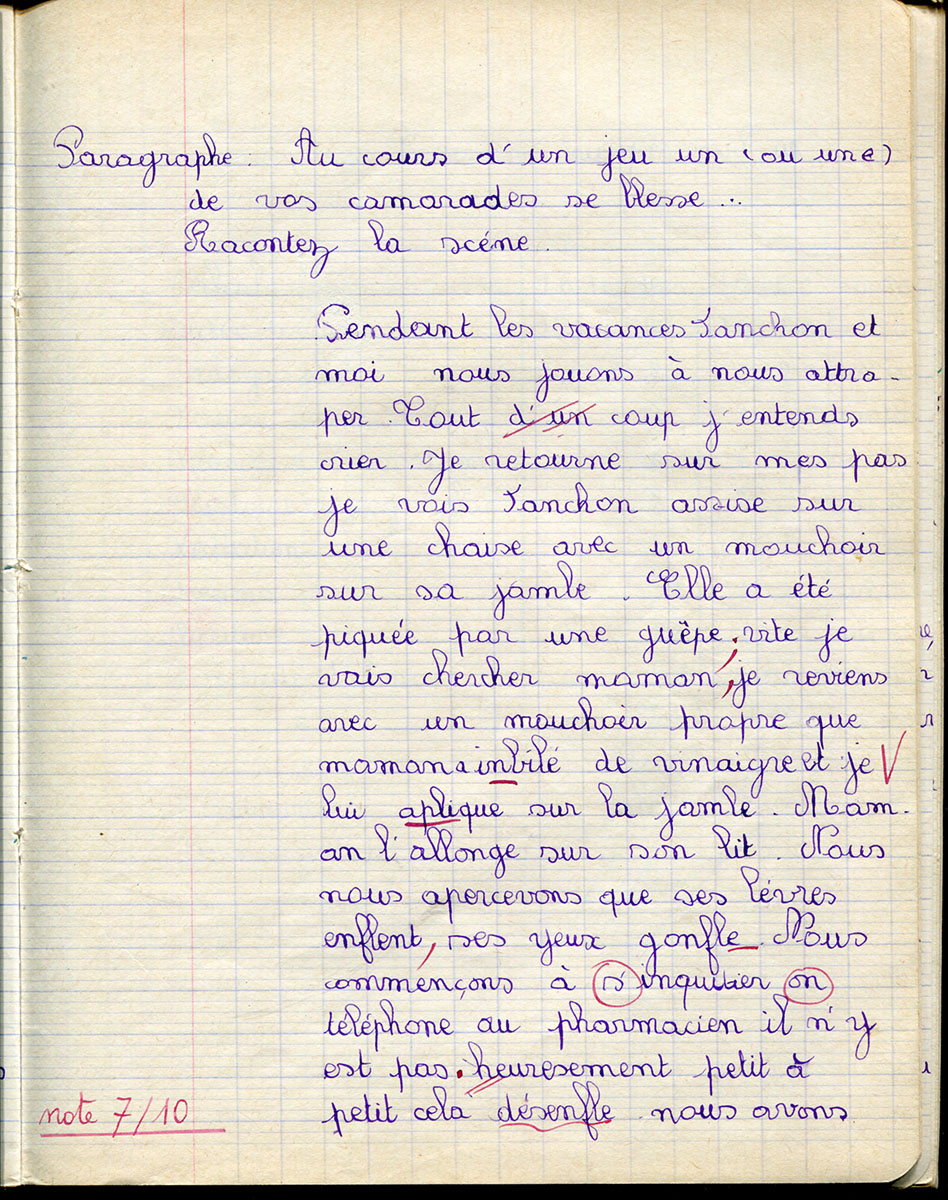 Paragraphe. Au cours d'un jeu un (ou une)
de vos camarades se blesse...
Racontez la scéne.
Pendant les vacances Fanchon et
moi nous jouons à nous attra-
per. Tout d'un coup j'entends
crier. Je retourne sur mes pas
je vois Fanchon assise sur
une chaise avec un mouchoir
sur sa jambe. Elle a été
piquée par une guêpe. vite je
vais chercher maman, je reviens
avec un mouchoir propre que
maman a inbilé de vinaigre et je
lui aplique sur la jambe. Mam-
an l'allonge sur son lit. Nous
nous apercevons que ses lévres
enflent, ses yeux gonfle. Nous
commençons à s'inquiter on
teléphone au pharmacien il n'y
est pas. heuresement petit à
petit cela désenfle nous avons
note 7/10